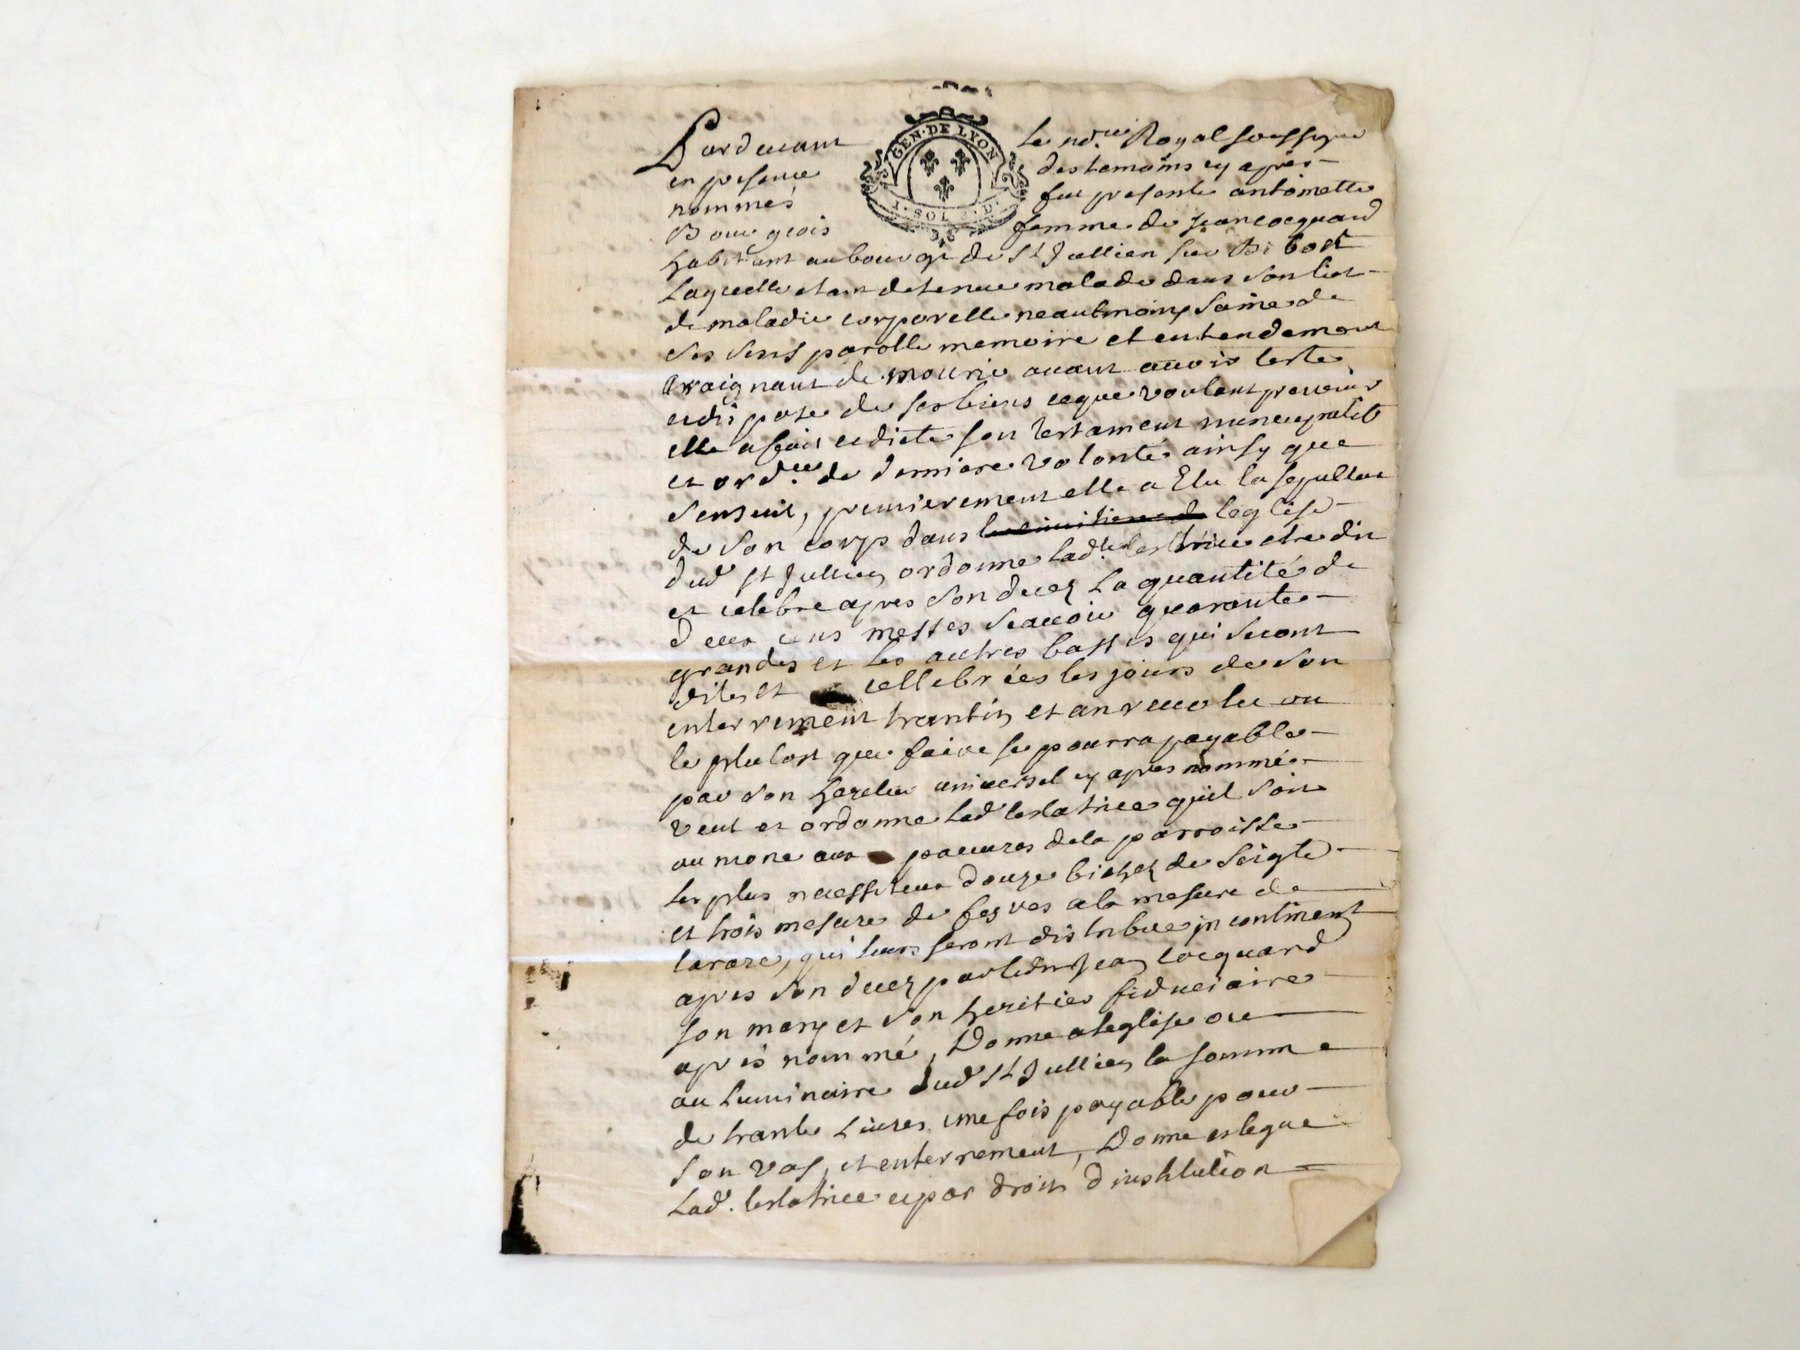 GEN · DE LYON
SOL D
Pardevant Le no.re Royal soussigné
en presence des temoins cy apres
nommés fut presente antoinette
Bourgeois femme de Jean cocquard
habitant au bourg de St Jullien sur Bi bost
Laquelle etant detenue malade dans son lict
de maladie corporelle neantmoings saine de
ses sens parolle memoire et entendement
Craignant de mourir avant avoir testé
et disposé de ses biens ce que voulant prevenir
elle a fait et dicté son testament nuncupatif
et ord.ce de derniere volonté ainsy que
s'ensuit, premierement elle a Elu la sepulture
de son corps dans le cimitiere de l'eglise
dud St Jullien ordonne lad.te testrice etre dit
et celebré apres son decez La quantité de
deux cens messes scavoir quarante
grandes et les autres basses qui seront
dites et cellebrées les jours de son
enterrement trantin et an revolu ou
le plutost que faire se pourra payable
par son heretier universel cy apres nommé
veut et ordonne Lad testatrice quil soit
aumone aux pauvres de la parroisse
Les plus necessiteux douze bichez de seigle
et trois mesure de feyves a la mesure de
larare, qui leurs seront distribué in continent
apres son decez par ledit Jean Cocquard
son mary et son heritier fiduciaire
apres nommé, Donne a leglise ou
au Luminaire dud St Jullien la somme
de trante Livres une fois payable pour
son vas, et enterrement, Donne et legue
Lad. testatrice et par droit d'institution